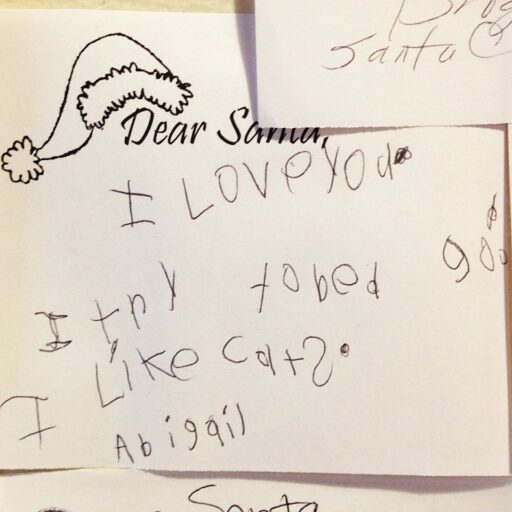 Santa
Dear Santa,
I LOVe YOU.
I try tobed goo
I Like Cats.
Abigail
Santa